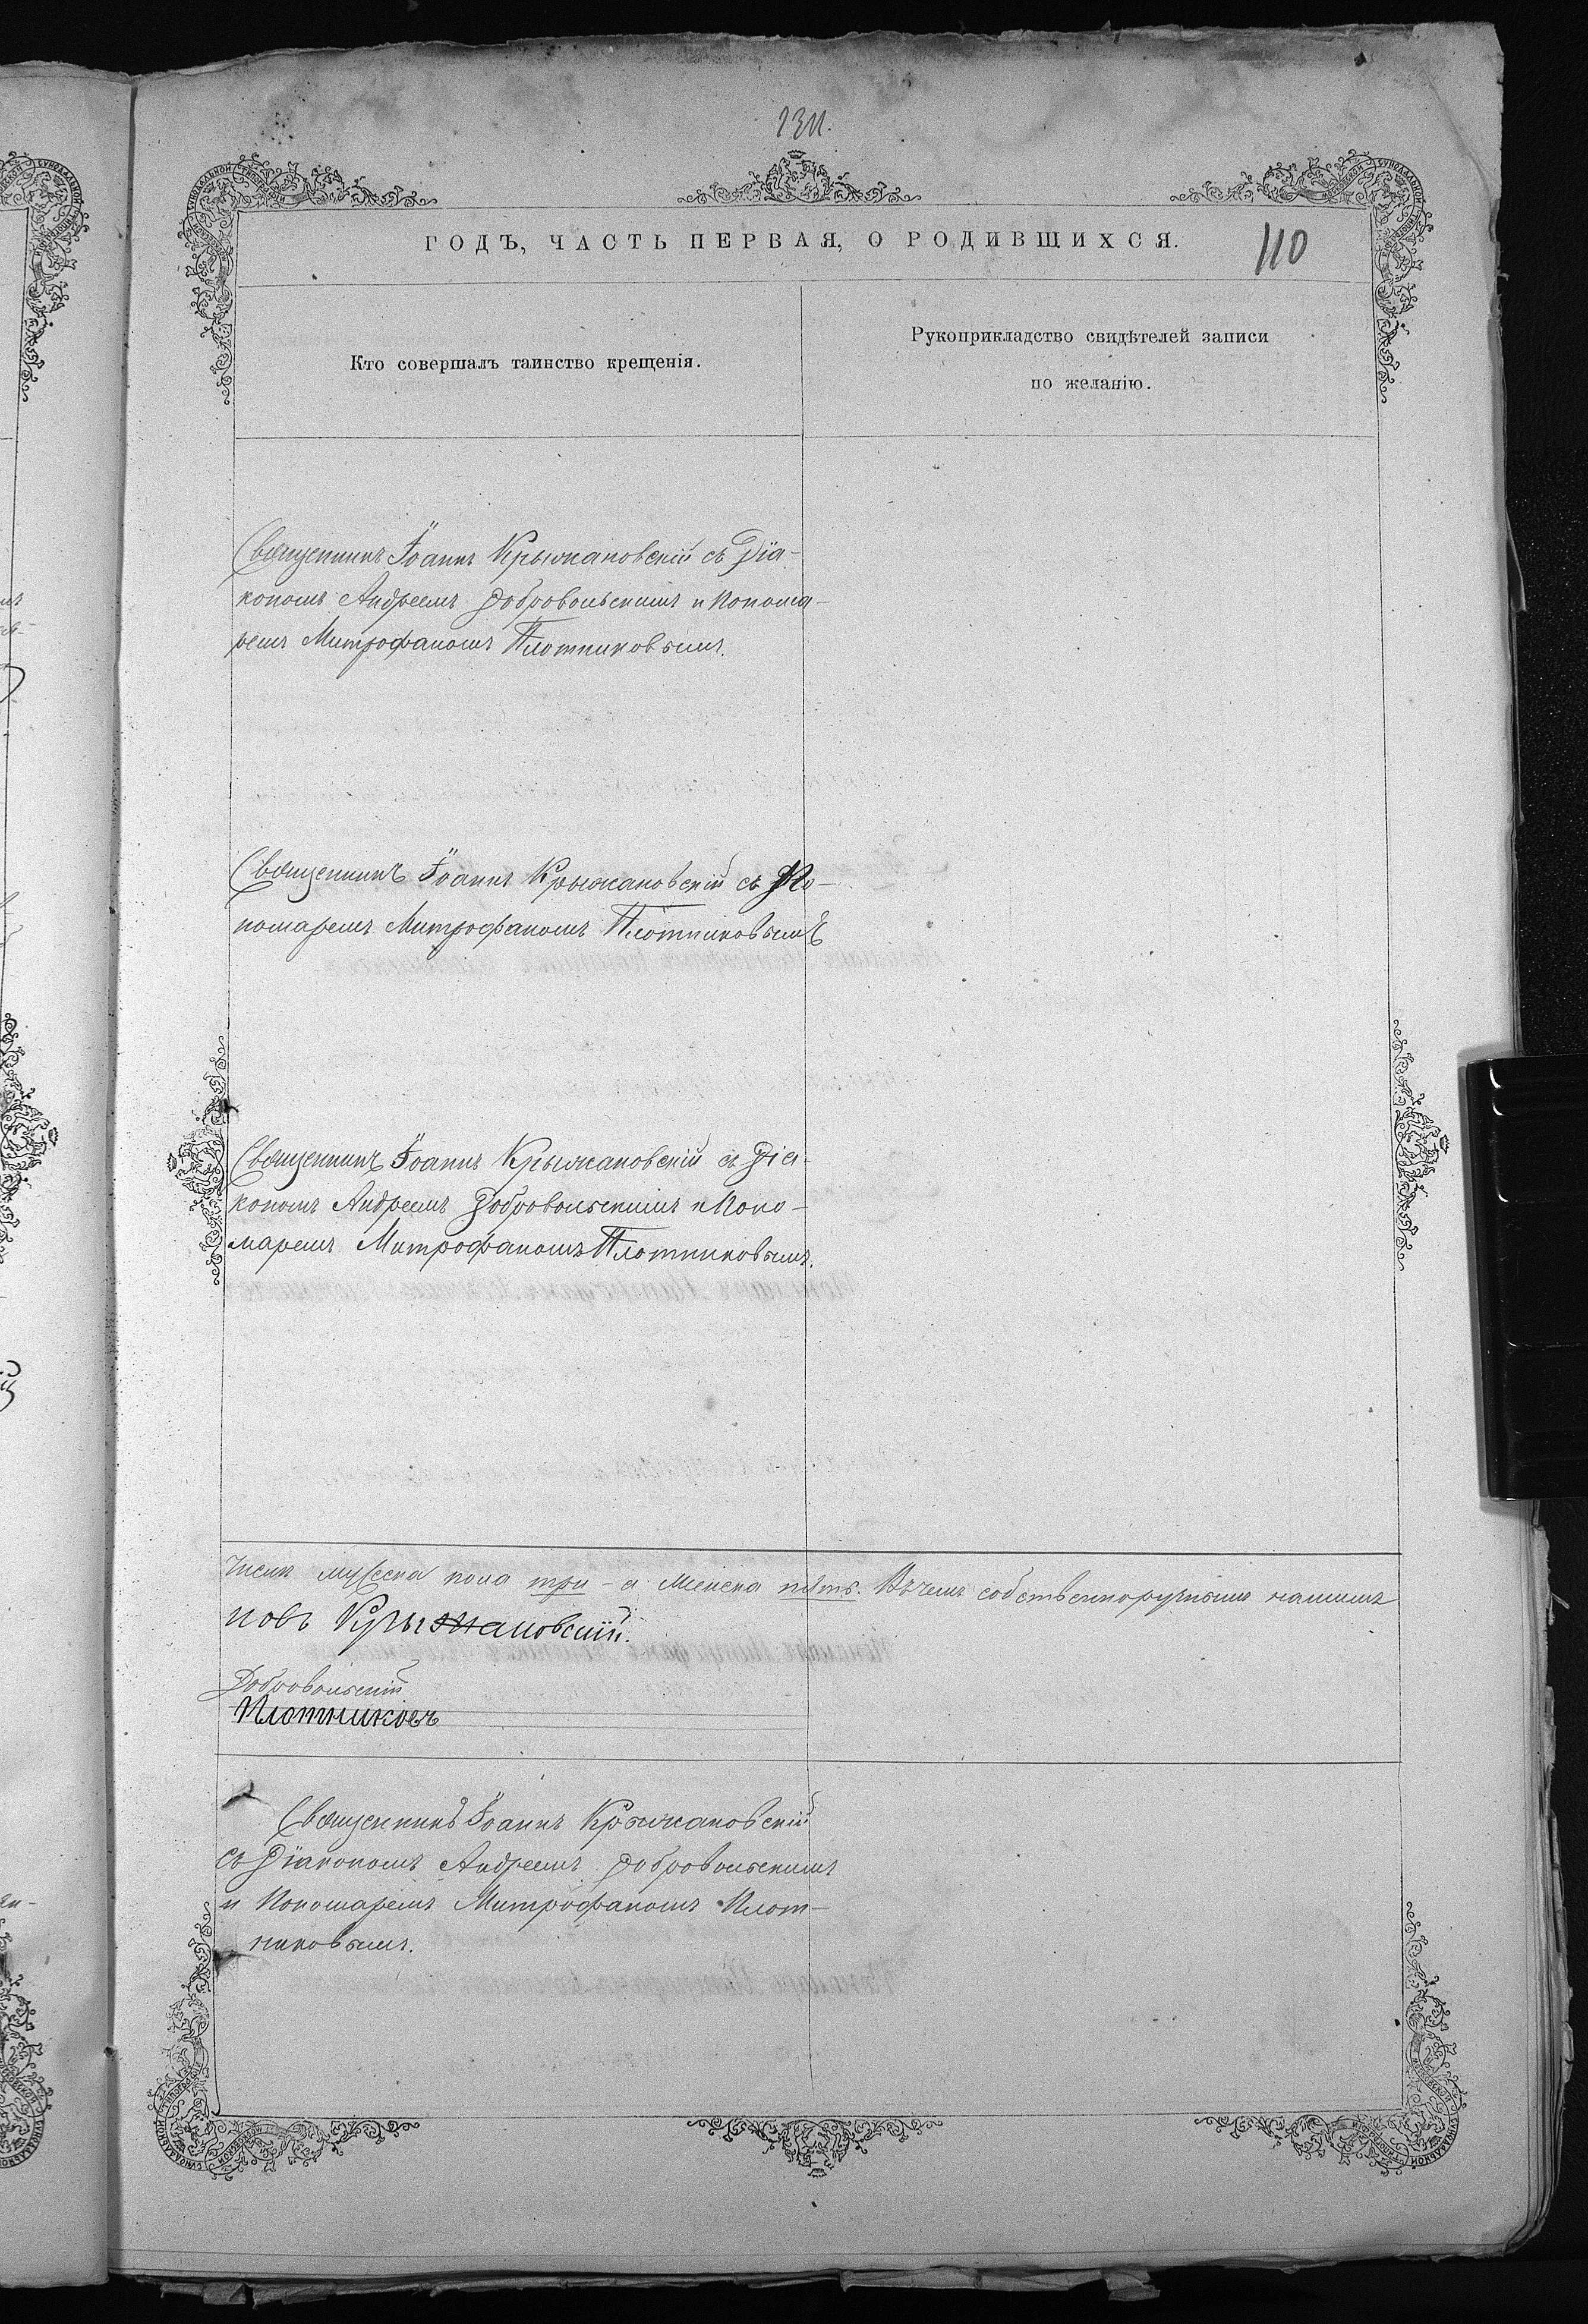 110
ГОДЪ, ЧАСТЬ ПЕРВАЯ, О РОДИВШИХСЯ.
Кто совершалъ таинство крещенія.
Рукоприкладство свидѣтелей записи
по желанію.
Священникъ Іоаннъ Крыжановскій съ Діа-
кономъ Андреемъ Добровольскимъ и Понома-
ремъ Митрофаномъ Плотниковымъ.
Священникъ Іоаннъ Крыжановскій съ По-
номаремъ Митрофаномъ Плотниковымъ
Священникъ Іоаннъ Крыжановскій съ Діа-
кономъ Андреемъ Добровольскимъ и Поно-
маремъ Митрофаномъ Плотниковымъ.
числѣ мужеска пола три – а женска пять. Въ чемъ собственноручнымъ нашимъ
Крыжановскій.
Добровольскій
Плотниковъ
Священникъ Іоаннъ Крыжановскій
съ Діакономъ Андреемъ Добровольскимъ
и Пономаремъ Митрофаномъ Плот-
никовымъ.